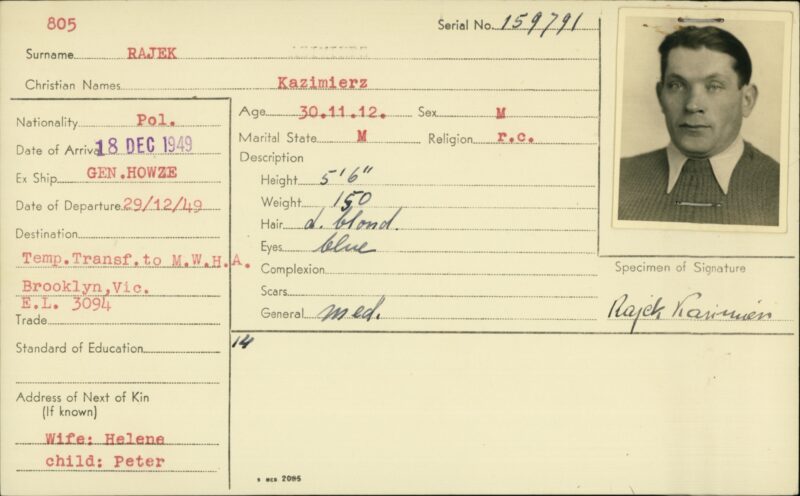 805
Serial No. 159791
Surname RAJEK
Christian Names Kazimierz
Nationality Pol.
Date of Arrival 18 DEC 1949
Ex Ship GEN.HOWZE
Date of Departure 29/12/49
Destination
Temp.Transf.to M.W.H.A.
Brooklyn,Vic.
E.L. 3094
Trade
Standard of Education
Address of Next of Kin
(If known)
Wife: Helene
child: Peter
Age 30.11.12. Sex M
Marital State M Religion r.c.
Description
Height 5'6"
Weight 150
Hair d. blond.
Eyes blue
Complexion
Scars
General med.
14
Specimen of Signature
Rajek Kazimierz
2095